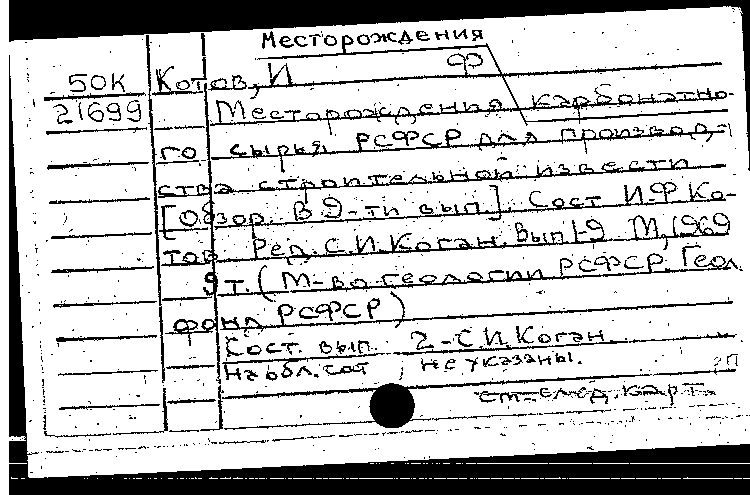 Месторождения
50К Котов, И Ф
21699 Месторождения карбонатно-
го сырья РСФСР для производ-
ства строительной извести
[Обзор. В 9-ти вып.]. Сост И.Ф. Ко-
тов Ред. С.И. Коган. Вып 1-9 М, 1969
9 т. (М-во геологии РСФСР. Геол.
фонд РСФСР)
Сост. вып. 2 - С.И. Коган.
На обл. сост , не указаны.
см след. карт.